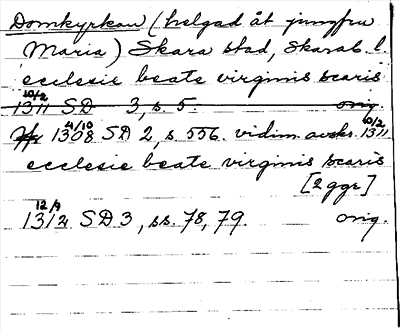 Domkyrkan (helgad åt jungfru
Maria) Skara stad, Skarab. l.
ecclesie beate virginis scaris
10/2 1311 SD 3, s. 5. orig.
4/10 1308 SD 2, s. 556. vidim. avskr. 10/2 1311
ecclesie beate virginis scaris
[2 ggr]
12/9 1312 SD 3, ss. 78, 79. orig.